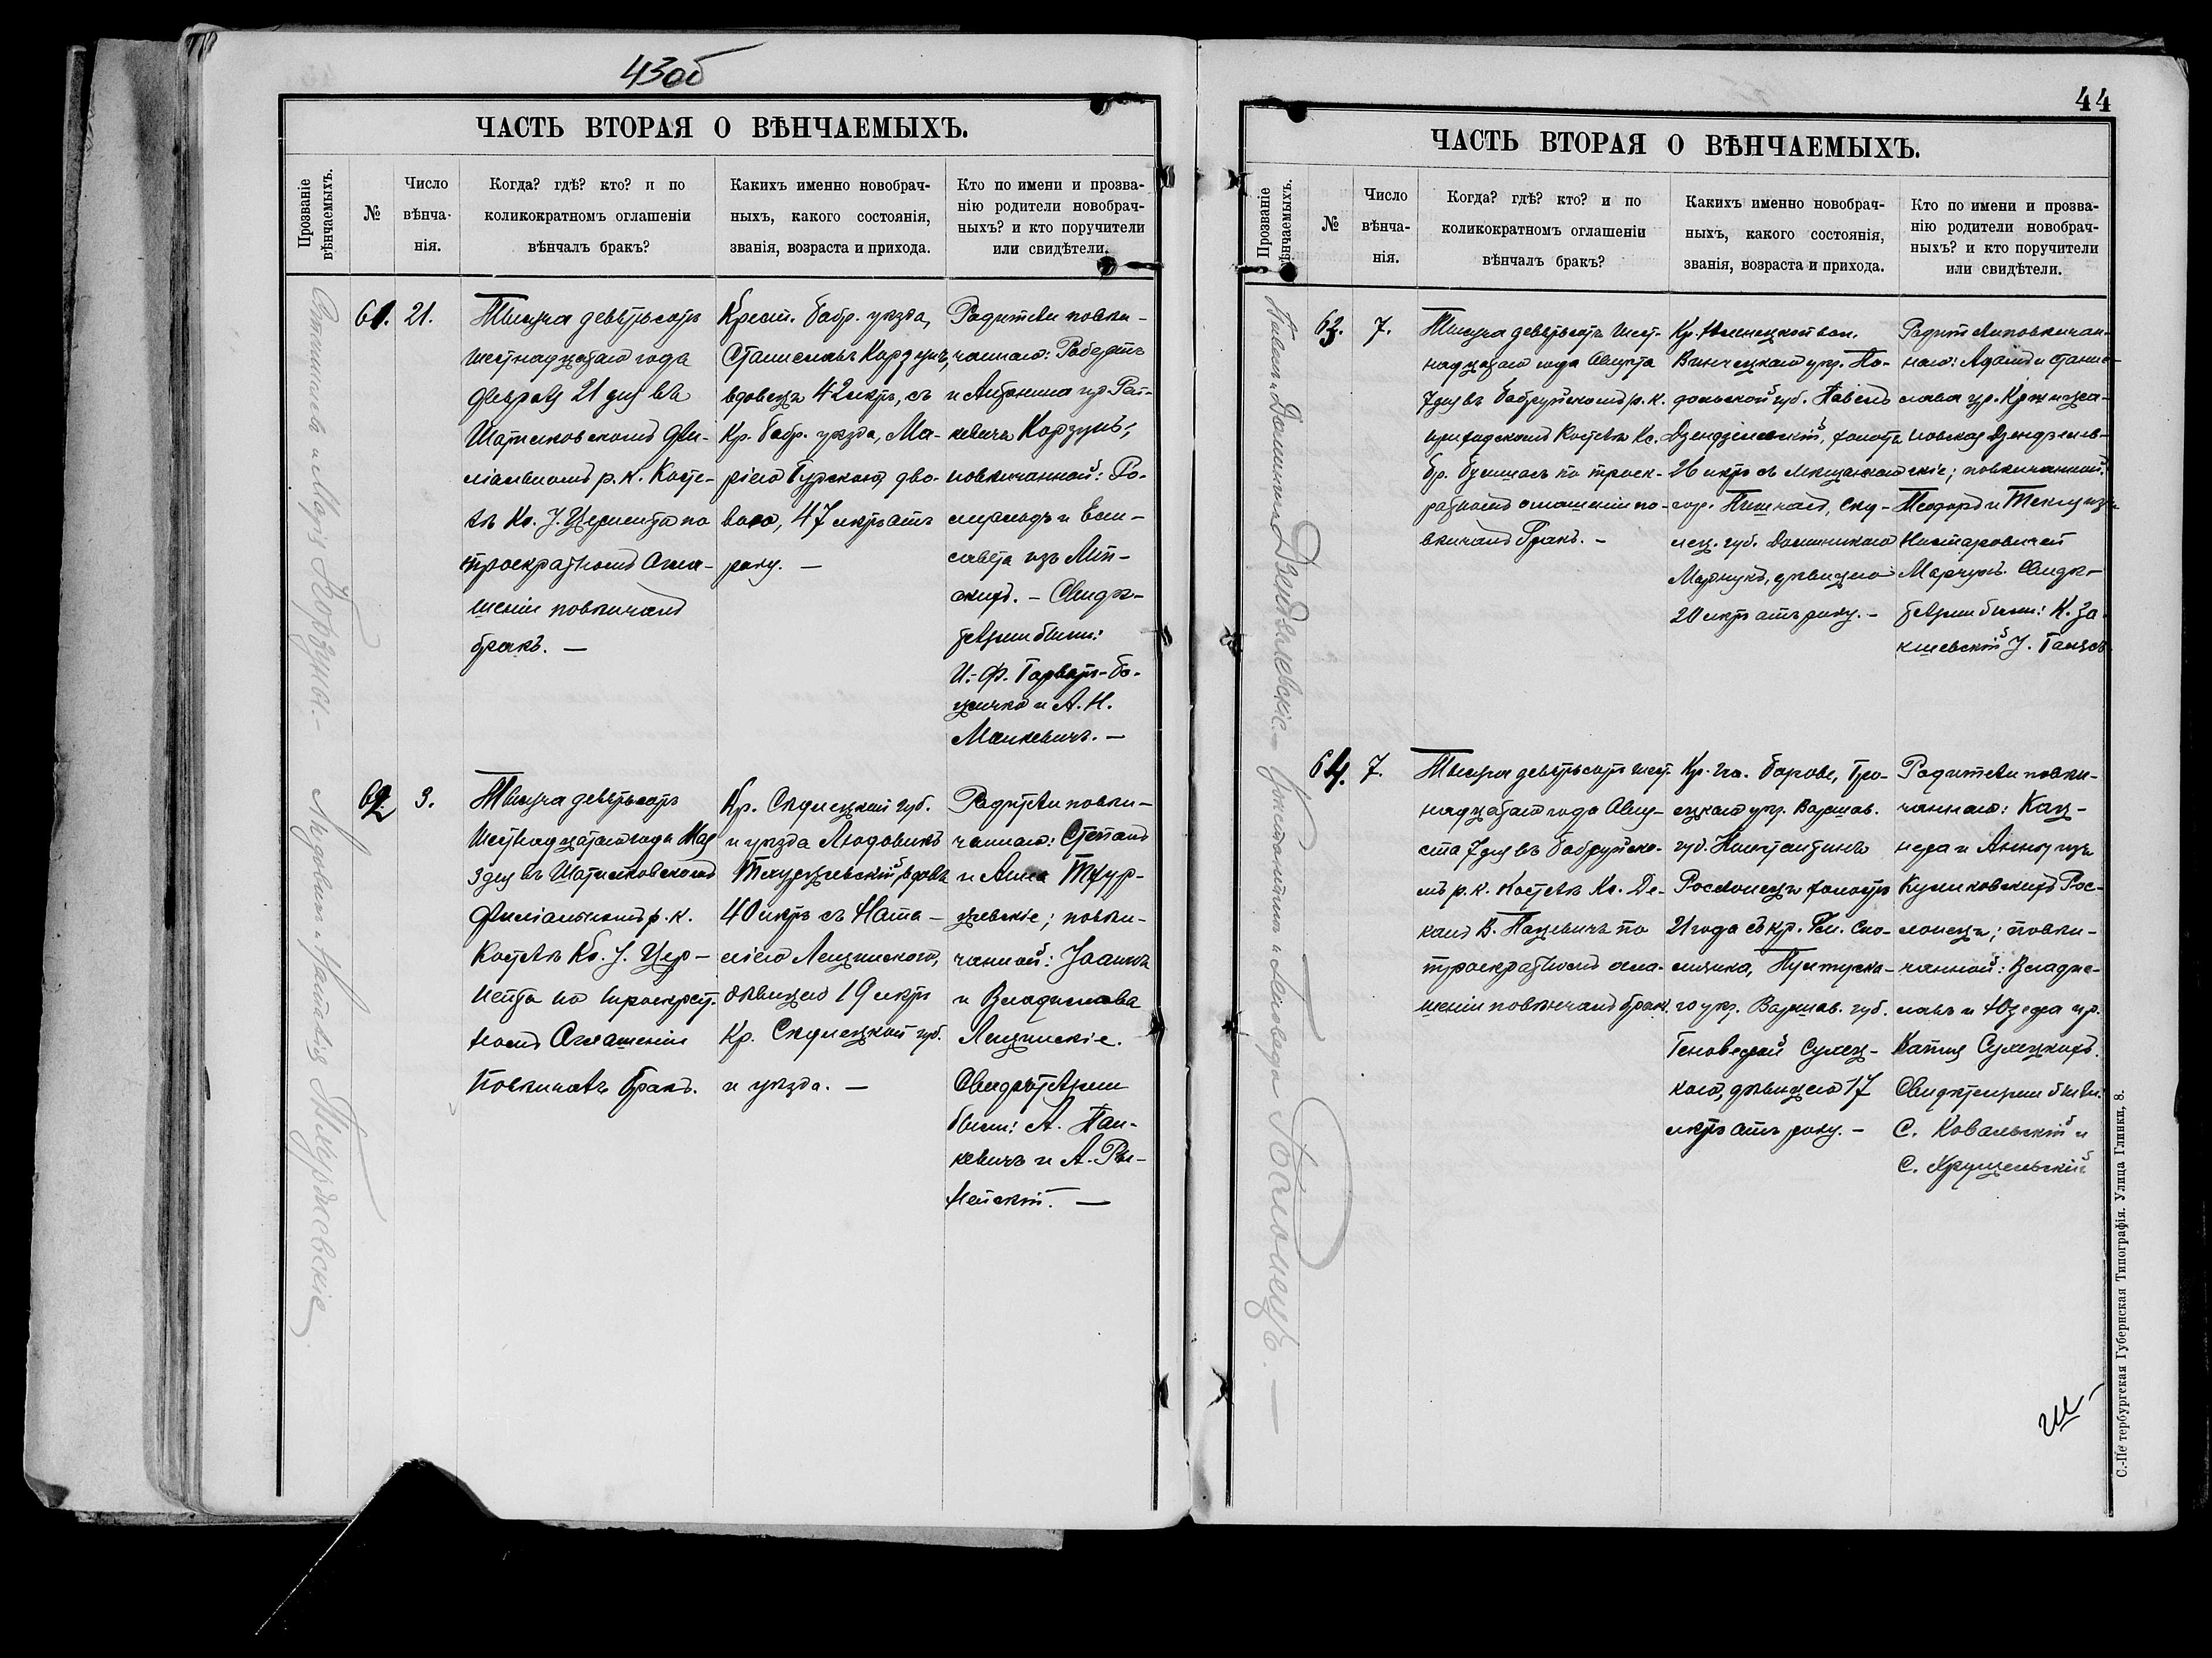 43об
ЧАСТЬ ВТОРАЯ О ВѢНЧАЕМЫХЪ.
Прозваніе вѣнчаемыхъ.
№
Число вѣнча-
нія.
Когда? гдѣ? кто? и по
коликократномъ оглашеніи
вѣнчалъ бракъ?
Какихъ именно новобрач-
ныхъ, какого состоянія,
званія, возраста и прихода.
Кто по имени и прозва-
нію родители новобрач-
ныхъ? и кто поручители
или свидѣтели.
Станислав и Марія Корзуны. –
61.
21.
Тысяча девятьсотъ
шестнадцатаго года
Февраля 21 дня въ
Шатилковскомъ Фи-
ліальномъ р. к. Косте-
лѣ Кс. J.
по
троекратномъ Огла-
шеніи повѣнчалъ
бракъ. —
Крест. Бобр. уѣзда,
Станиславъ Корзунъ,
вдовецъ 42 лѣтъ, съ
Кр. Бобр. уѣзда, Ма-
ріею Гурскою, вдо-
вою, 47 лѣтъ отъ
роду. —
Родители повѣн-
чаннаго: Робертъ
и Антонина ур. Рай-
кевичъ Корзунъ;
повѣнчанной:
и Ели-
савета изъ Лип-
скихъ. – Свидѣ-
телями были:
И. Ф.
и А. Н.
Манкевичъ. —
Людовикъ и Наталія Тхуржевскіе
62
3.
Тысяча девятьсотъ
Шестнадцатаго года Мая
3 дня въ Шатилковскомъ
Филіальномъ р. к.
Костелѣ Кс. J.
по троекрат-
номъ Оглашеніи
Повѣнчалъ бракъ.
Кр. Сѣдлецкой губ.
и уѣзда Людовикъ
Тхуржевскій, вдовъ
40 лѣтъ съ Ната-
ліею Лещинскою,
дѣвицею 19 лѣтъ
Кр. Сѣдлецкой губ.
и уѣзда. —
Родители повѣн-
чаннаго: Степанъ
и Анна Тхур-
жевскіе; повѣн-
чанной: Іоаннъ
и Владислава
Лещинскіе.
Свидѣтелями
были: А. Пан-
кевичъ и А.
44
ЧАСТЬ ВТОРАЯ О ВѢНЧАЕМЫХЪ.
Прозваніе вѣнчаемыхъ.
№
Число
вѣнча-
нія.
Когда? гдѣ? кто? и по
коликократномъ оглашеніи
вѣнчалъ бракъ?
Какихъ именно новобрач-
ныхъ, какого состоянія,
званія, возраста и прихода.
Кто по имени и прозва-
нію родители новобрач-
ныхъ? и кто поручители
или свидѣтели.
Павелъ и Доминика Дзендзелевскіе. –
63.
7.
Тысяча девятьсотъ шест-
надцатаго года Августа
7 дня въ Бобруйскомъ р. к.
приходскомъ Костелѣ Кс.
по троек-
ратномъ оглашеніи по-
вѣнчалъ бракъ. –
Кр.
вол.
уѣз. По-
дольской губ. Павелъ
Дзендзелевскій, холостъ
26 лѣтъ съ мѣщанкой
гор.
губ. Доминикою
Марчукъ, дѣвицею
20 лѣтъ отъ роду. –
Родители повѣнчан-
наго: Адамъ и Стани-
слава ур.
Дзендзелев-
скіе; повѣнчанной:
Теодоръ и Текля изъ
Марчукъ. Свидѣ-
телями были: К. За-
J.
Константинъ и Геновефа Рослонецъ. —
64.
7.
Тысяча девятьсотъ шест-
надцатаго года Авгу-
ста 7 дня въ Бобруйско-
мъ р. к. Костелѣ Кс. Де-
канъ В. Пацевичъ по
троекратномъ огла-
шеніи повѣнчалъ бракъ.
Кр. гм.
уѣз. Варшав.
губ. Константинъ
Рослонецъ холостъ
21 года съ кр. Гм.
Пултуска-
го уѣз. Варшав. губ.
Геновефой Сулец-
кою, дѣвицею 17
лѣтъ отъ роду. –
Родители повѣн-
чаннаго:
и Анны изъ
Куликовскихъ Рос-
лонецъ; повѣн-
чанной: Владис-
лавъ и Юзефа ур.
Сулецкихъ.
Свидѣтелями были:
С. Ковальскій и
С.
С.-Петербургская Губернская Типографія. Улица Глинки, 8.